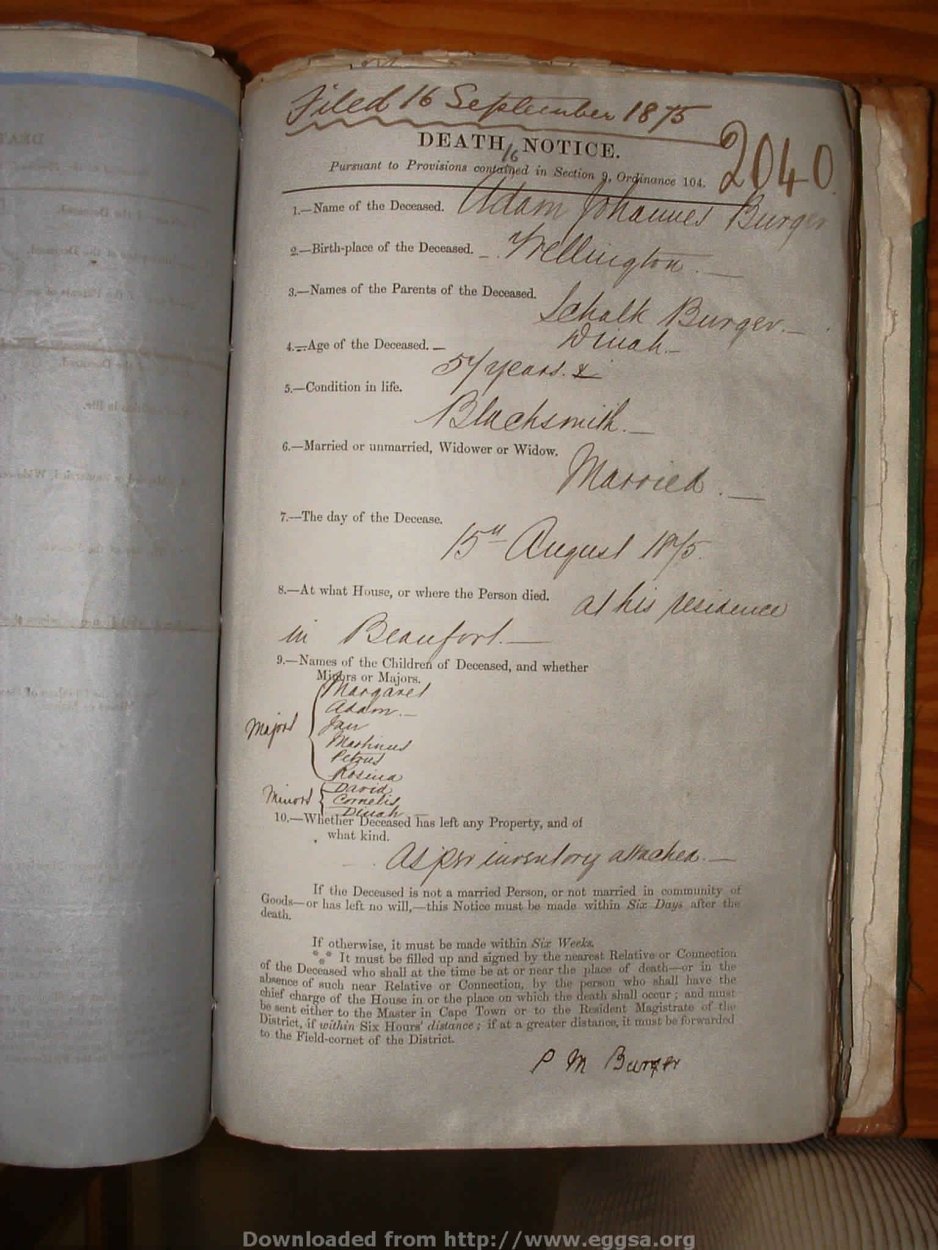 Filed 16 September 1875
2040
DEATH NOTICE.
16
Pursuant to Provisions contained in Section 9, Ordinance 104.
1.—Name of the Deceased. Adam Johannes Burger
2.—Birth-place of the Deceased. — Wellington —
3.—Names of the Parents of the Deceased.
Schalk Burger —
Dinah —
4.—Age of the Deceased. —
57 years. &
5.—Condition in life.
Blacksmith. —
6.—Married or unmarried, Widower or Widow.
Married. —
7.—The day of the Decease.
15th August 1875.
8.—At what House, or where the Person died. at his residence
in Beaufort. —
9.—Names of the Children of Deceased, and whether
Minors or Majors.
Majors
Margaret
Adam —
Jan
Marthinus
Petrus
Rosina
Minors
David
Cornelis
Dinah —
10.—Whether Deceased has left any Property, and of
what kind.
As per inventory attached. —
If the Deceased is not a married Person, or not married in community of
Goods—or has left no will,—this Notice must be made within Six Days after the
death.
If otherwise, it must be made within Six Weeks.
*** It must be filled up and signed by the nearest Relative or Connection
of the Deceased who shall at the time be at or near the place of death—or in the
absence of such near Relative or Connection, by the person who shall have the
chief charge of the House in or the place on which the death shall occur; and must
be sent either to the Master in Cape Town or to the Resident Magistrate of the
District, if within Six Hours' distance; if at a greater distance, it must be forwarded
to the Field-cornet of the District.
P M Burger
Downloaded from http://www.eggsa.org